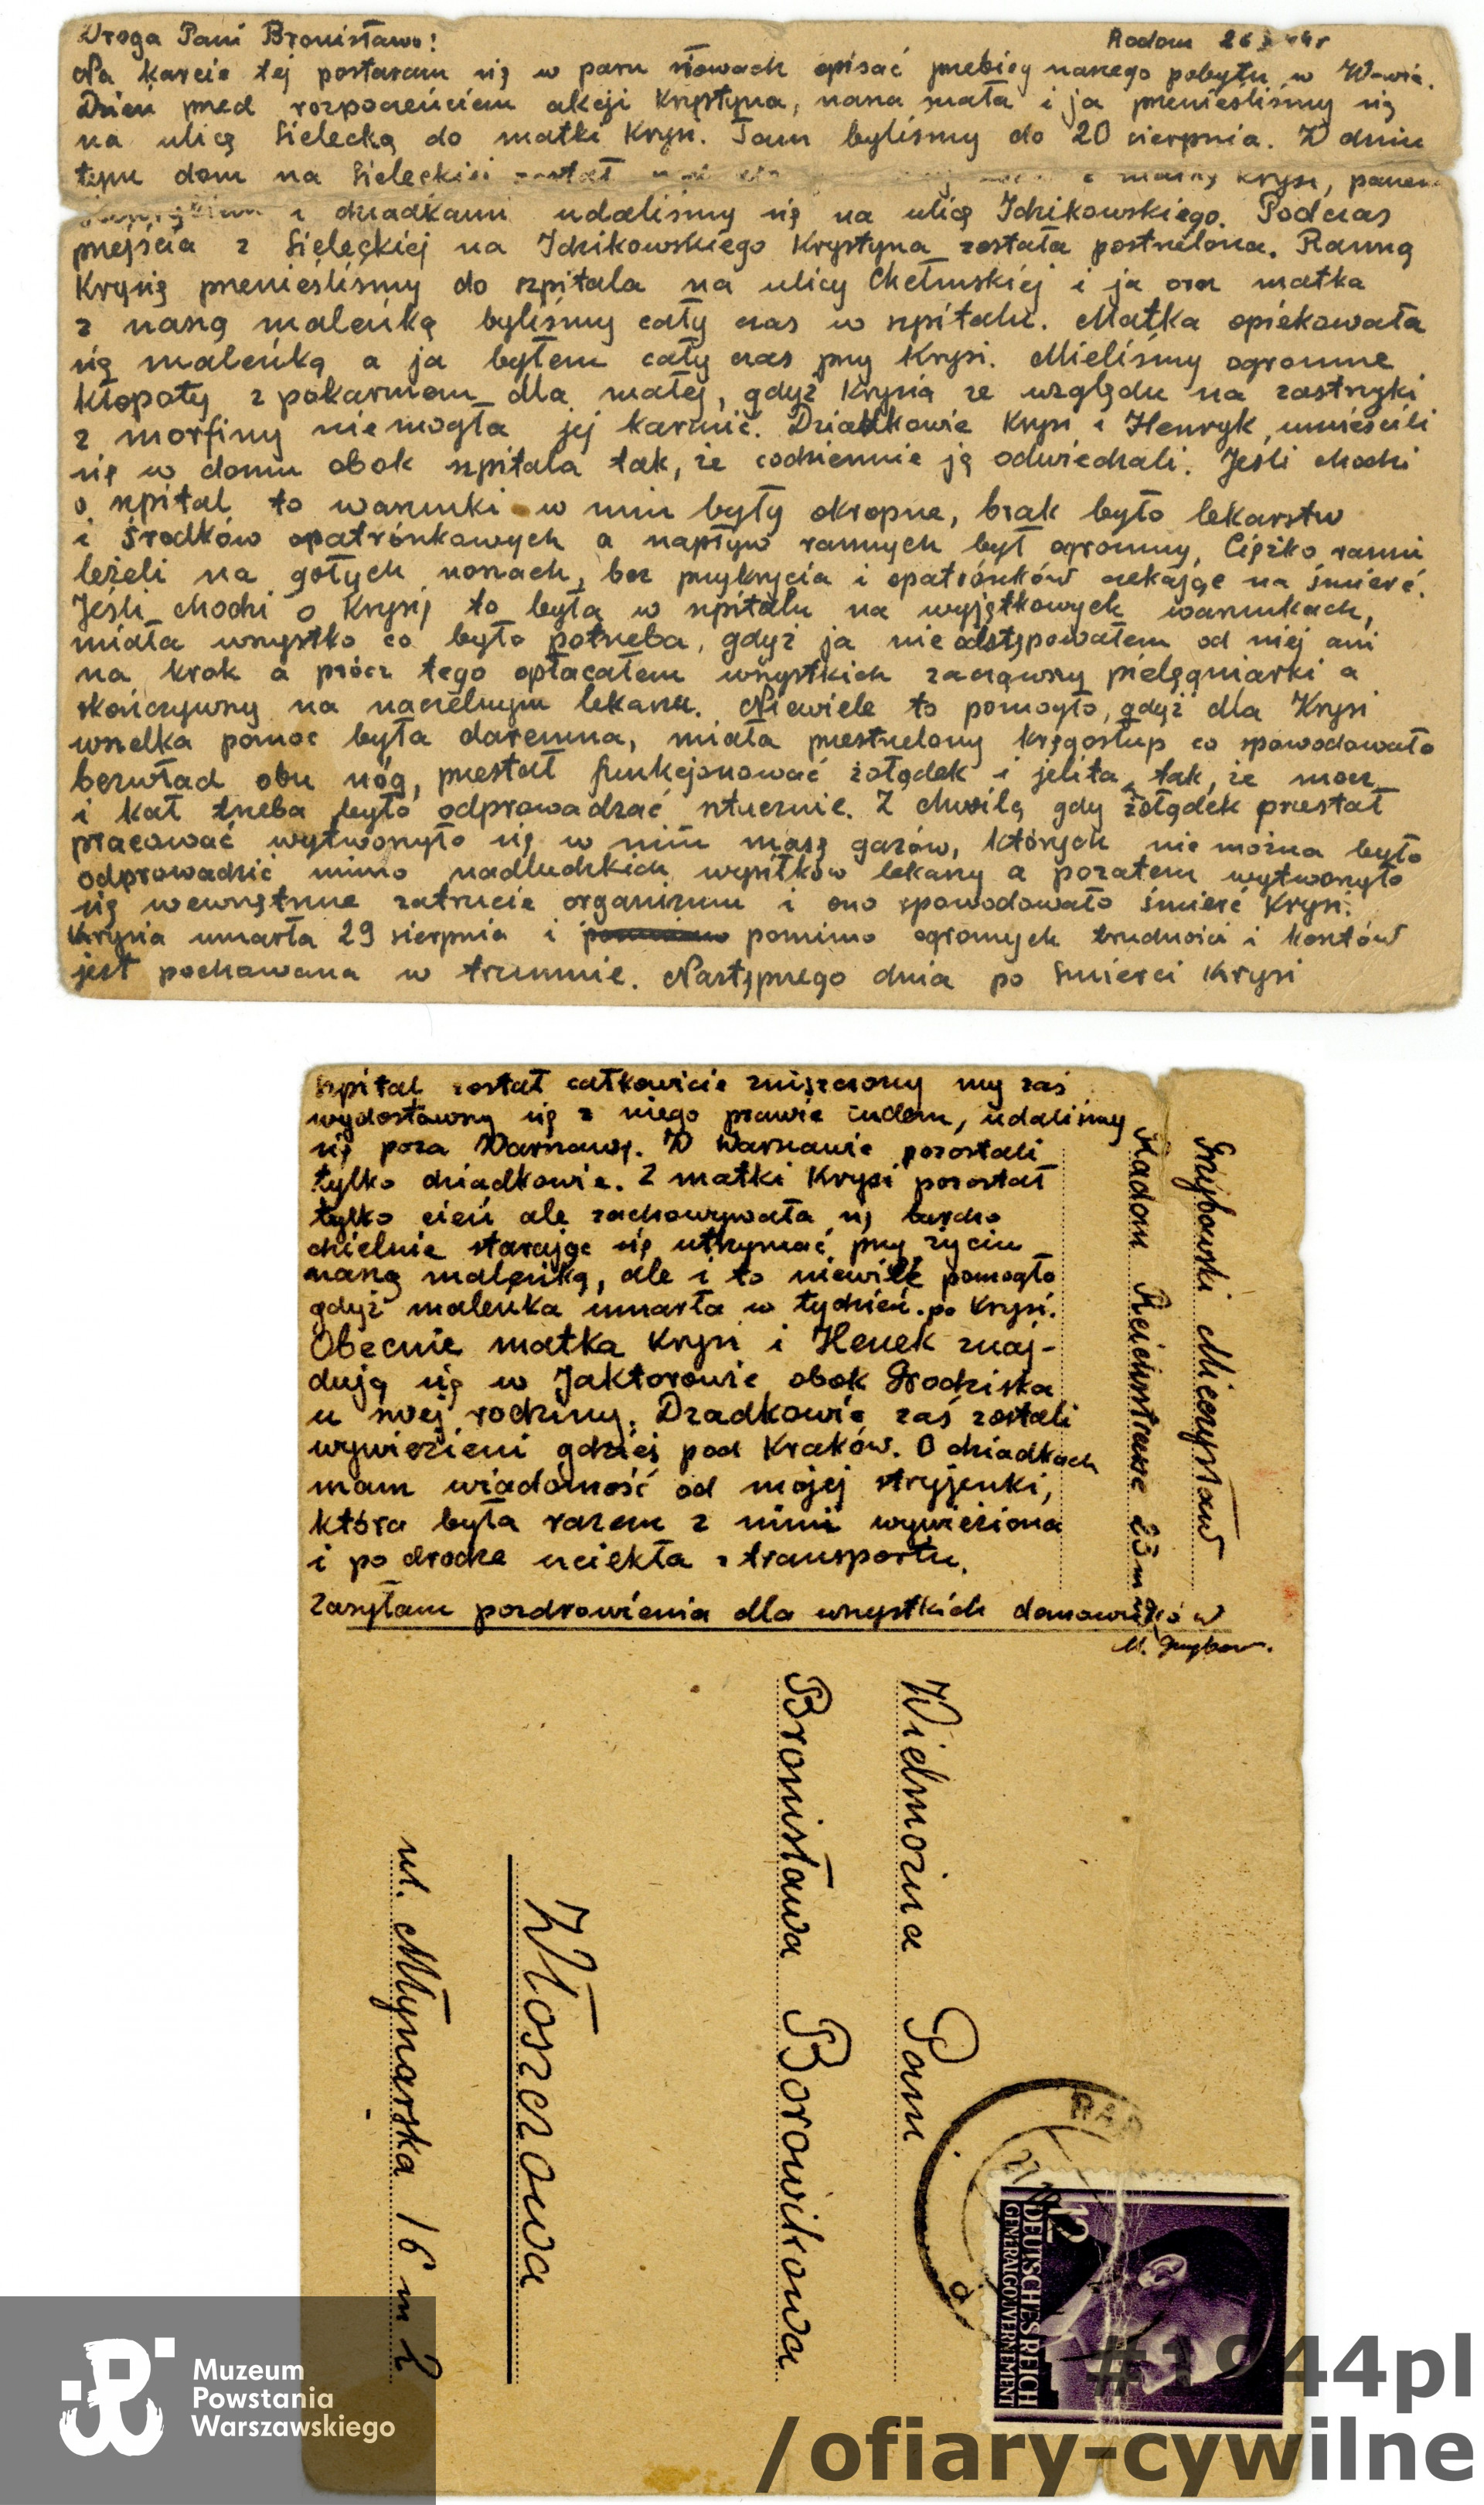 Droga Pani Bronisławo!
Radom 26
Na karcie tej postaram się w paru słowach opisać przebieg naszego pobytu w W-wie.
Dzień przed rozpoczęciem akcji Krystyna, nasza mała i ja przenieśliśmy się
na ulicę Sielecką do matki Krysi. Tam byliśmy do 20 sierpnia. W dniu
tym dom na Sieleckiej został i matką Krysi, panem
i dziadkami udaliśmy się na ulicę Idzikowskiego. Podczas
przejścia z Sieleckiej na Idzikowskiego Krystyna została postrzelona. Ranną
Krysię przenieśliśmy do szpitala na ulicy Chełmskiej i ja oraz matka
z naszą maleńką byliśmy cały czas w szpitalu. Matka opiekowała
się maleńką a ja byłem cały czas przy Krysi. Mieliśmy ogromne
kłopoty z pokarmem dla małej, gdyż Krysia ze względu na zastrzyki
z morfiny niemogła jej karmić. Dziadkowie Krysi i Henryk umieścili
się w domu obok szpitala tak, że codziennie ją odwiedzali. Jeśli chodzi
o szpital to warunki w nim były okropne, brak było lekarstw
i środków opatrónkowych a napływ rannych był ogromny. Ciężko ranni
leżeli na gołych noszach, bez przykrycia i opatrónków czekając na śmierć.
Jeśli chodzi o Krysię to była w szpitalu na wyjątkowych warunkach,
miała wszystko co było potrzeba, gdyż ja nie odstępowałem od niej ani
na krok a prócz tego opłacałem wszystkich zacząwszy pielęgniarki a
skończywszy na naczelnym lekarzu. Niewiele to pomogło, gdyż dla Krysi
wszelka pomoc była daremna, miała przestrzelony kręgosłup co spowodowało
bezwład obu nóg, przestał funkcjonować żołądek i jelita, tak, że mocz
i kał trzeba było odprowadzać sztucznie. Z chwilą gdy żołądek przestał
pracować wytworzyło się w nim masę gazów, których nie można było
odprowadzić mimo nadludzkich wysiłków lekarzy a pozatem wytworzyło
się wewnętrzne zatrucie organizmu i ono spowodowało śmierć Krysi.
Krysia umarła 29 sierpnia i pomimo ogromych trudności i kosztów
jest pochowana w trumnie. Następnego dnia po śmierci Krysi
szpital został całkowicie zniszczony my zaś
wydostawszy się z niego prawie cudem, udaliśmy
się poza Warszawę. W Warszawie pozostali
tylko dziadkowie. Z matki Krysi pozostał
tylko cień ale zachowywała się bardzo
dzielnie starając się utrzymać przy życiu
naszą maleńką, ale i to niewile pomogło
gdyż maleńka umarła w tydzień po Krysi.
Obecnie matka Krysi i Henek znaj-
dują się w Jaktorowie obok Grodziska
u swej rodziny. Dzadkowie zaś zostali
wywiezieni gdzieś pod Kraków. O dziadkach
mam wiadomość od mojej stryjenki,
która była razem z nimi wywieziona
i po drodze uciekła z transportu.
Zasyłam pozdrowienia dla wszystkich domowników
M. Grzybow.
Grzybowski Mieczysław
Radom Reichsstrasse 23 m
Wielmożna Pani
Bronisława Borowikowa
Włoszczowa
ul. Młynarska 16 m 2
RAD
12
DEUTSCHES REICH
GENERALGOUVERNEMENT
Muzeum
Powstania
Warszawskiego
#1944pl
/ofiary-cywilne